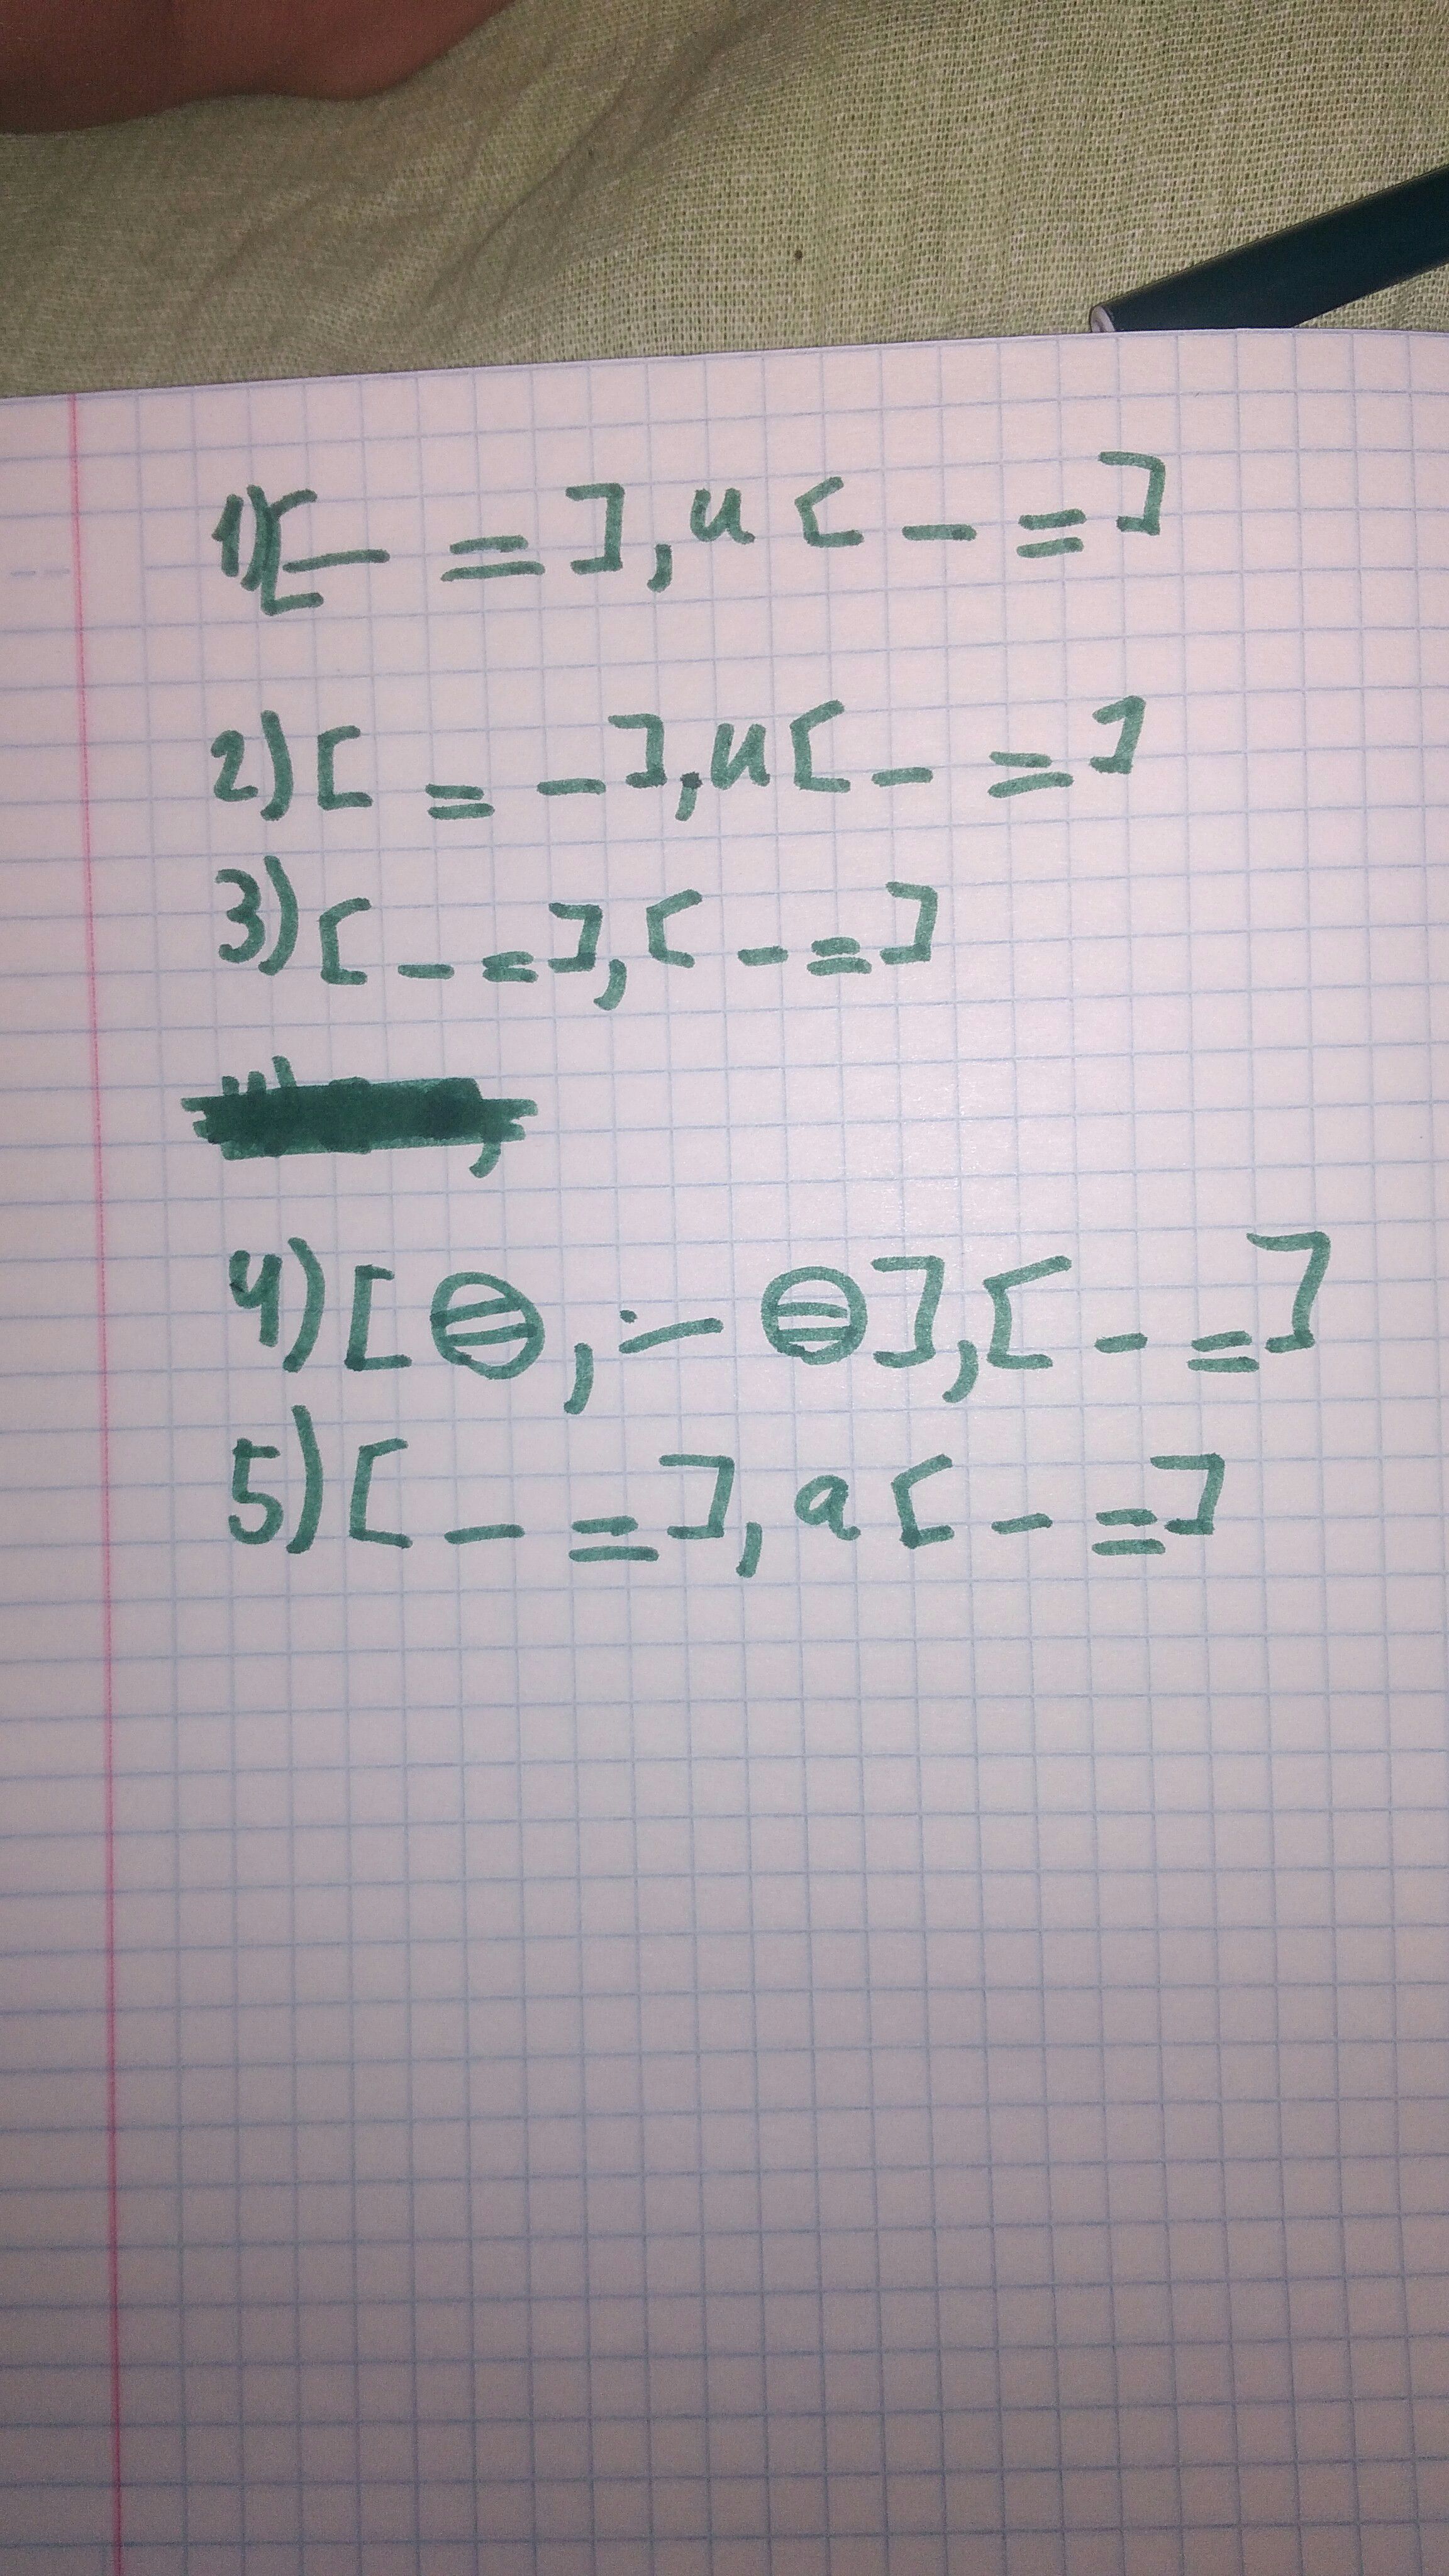 1)[— =], и [— =]
2)[= —], и [— =]
3)[— =], [— =]
4)[⊜, ∸ ⊜], [— =]
5)[— =], а [— =]